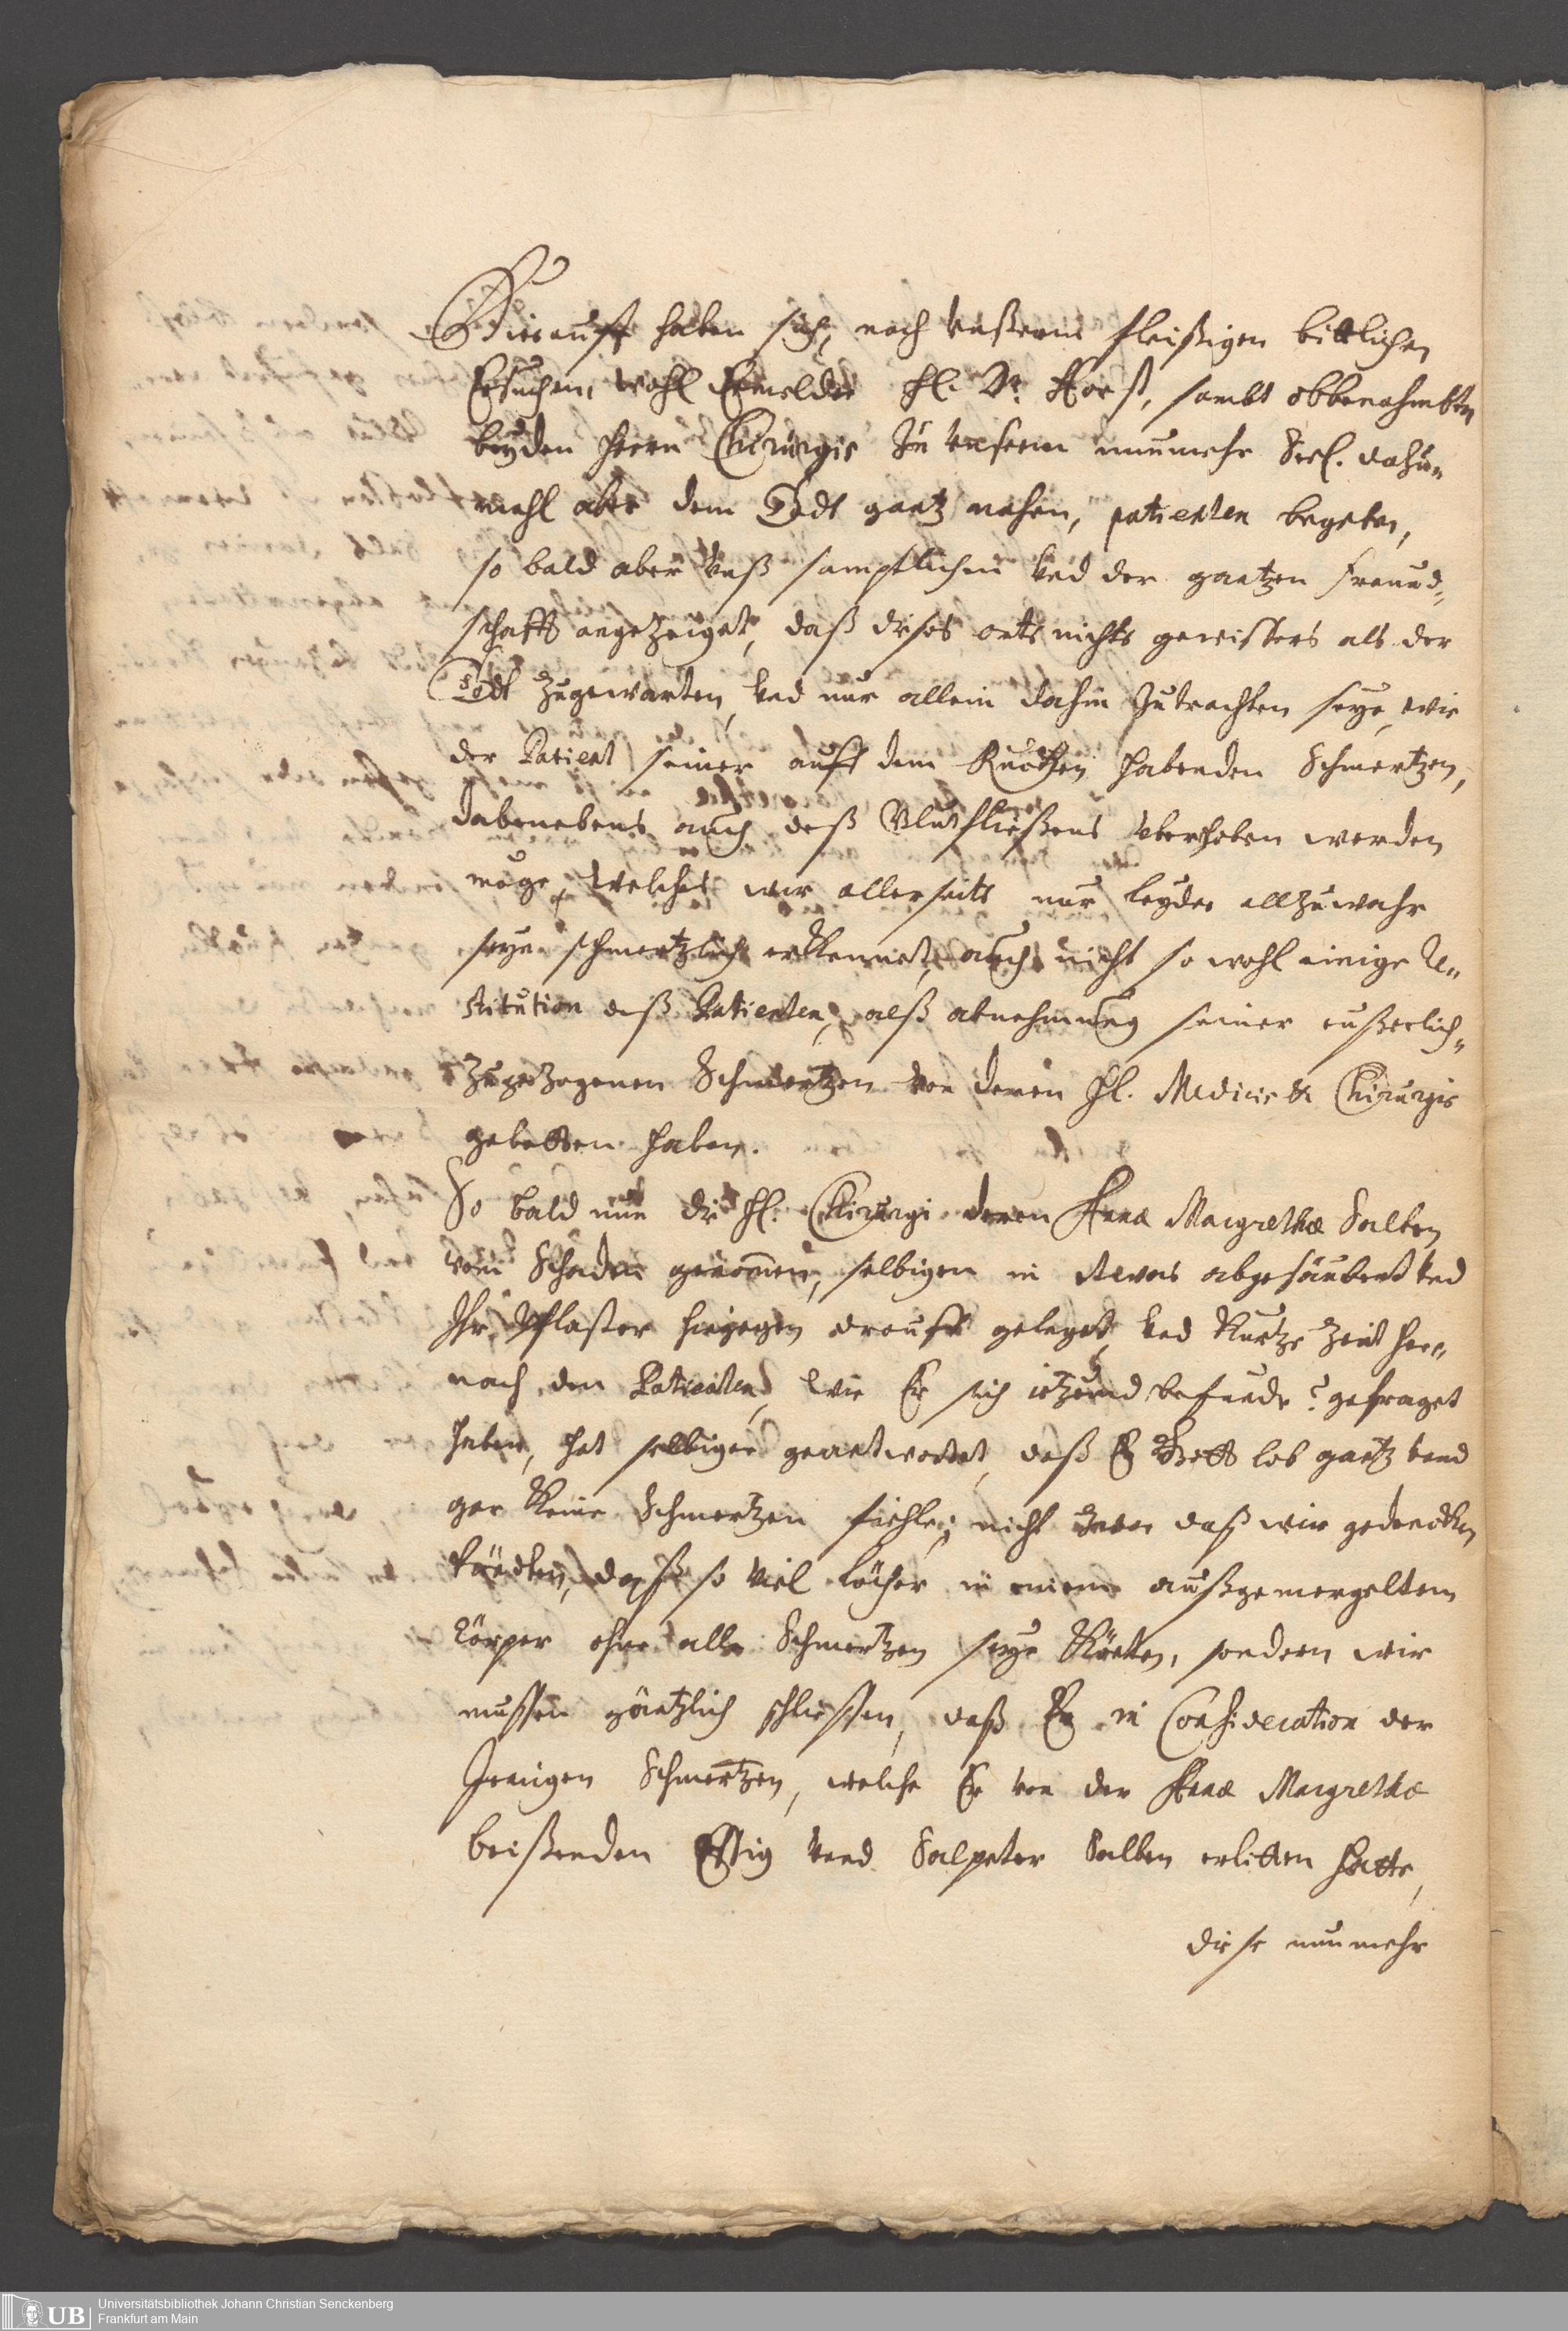 Hierauff haben sich, nach unßerm fleißigen bittlichen
Ersuchen, wohl Ermelder Hl. Dr. Horst, sambt obbenahmbten
beyden Herrn Chirurgis zu unserm nunmehr Seel. dahu=
mahl aber dem Todt gantz nahen, patienten begeben,
so bald aber unß sampftlichen und der gantzen freund=
schafft angezeiget, daß dises orts nichts gewissers als der
Todt zugewarten, und nur allein dahin zutrachten seye, wie
der Patient seiner auff dem Rucken habenden Schmertzen,
dabenebens auch deß Blutfließens überhoben werden
möge, welches wir allerseits nur leyder allzuwahr
seyn schmertzlich erkennet, auch nicht so wohl einige Re=
stitution deß Patienten, alß abnehmung seiner eußerlich=
zugezogenen Schmertzen von denen Hl. Medicis & Chirurgis
gebetten haben.
So bald nun die Hl. Chirurgi deren Annæ Margrethæ Salben
vom Schaden genommen, selbigen in etwas abgesäubert und
Ihr Pflaster hiegegen drauff geleget, und Kurtze Zeit her=
nach den Patienten, wie Er sich ietzund befunde? gefraget
haben, hat selbiger geantwortet, daß Er Gott lob gantz und
gar Keine Schmertzen fiehle, nicht zwar daß wir gedencken
köndten, daß so viel löcher in einem außgemergeltem
Cörper ohne alle Schmertzen seye Könten, sondern wir
mussen gäntzlich schliessen, daß Er in Consideration der
Jenigen Schmertzen, welche Er von der Annæ Margrethæ
beißenden Essig und Salpeter Salben erlitten hatte,
diese nunmehr
Universitätsbibliothek Johann Christian Senckenberg
Frankfurt am Main
UB